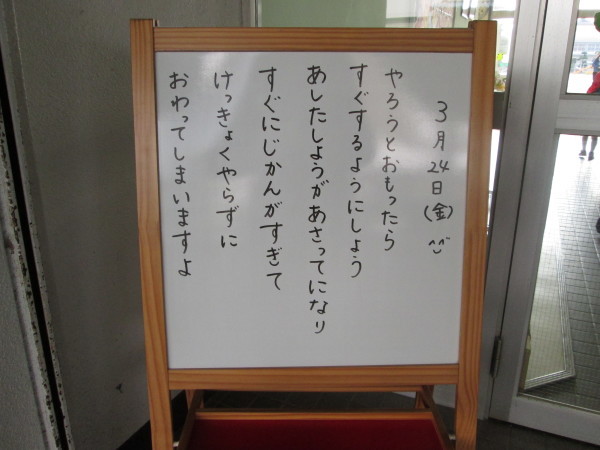 3月24日(金) ^^
やろうとおもったら
すぐするようにしよう
あしたしようがあさってになり
すぐにじかんがすぎて
けっきょくやらずに
おわってしまいますよ